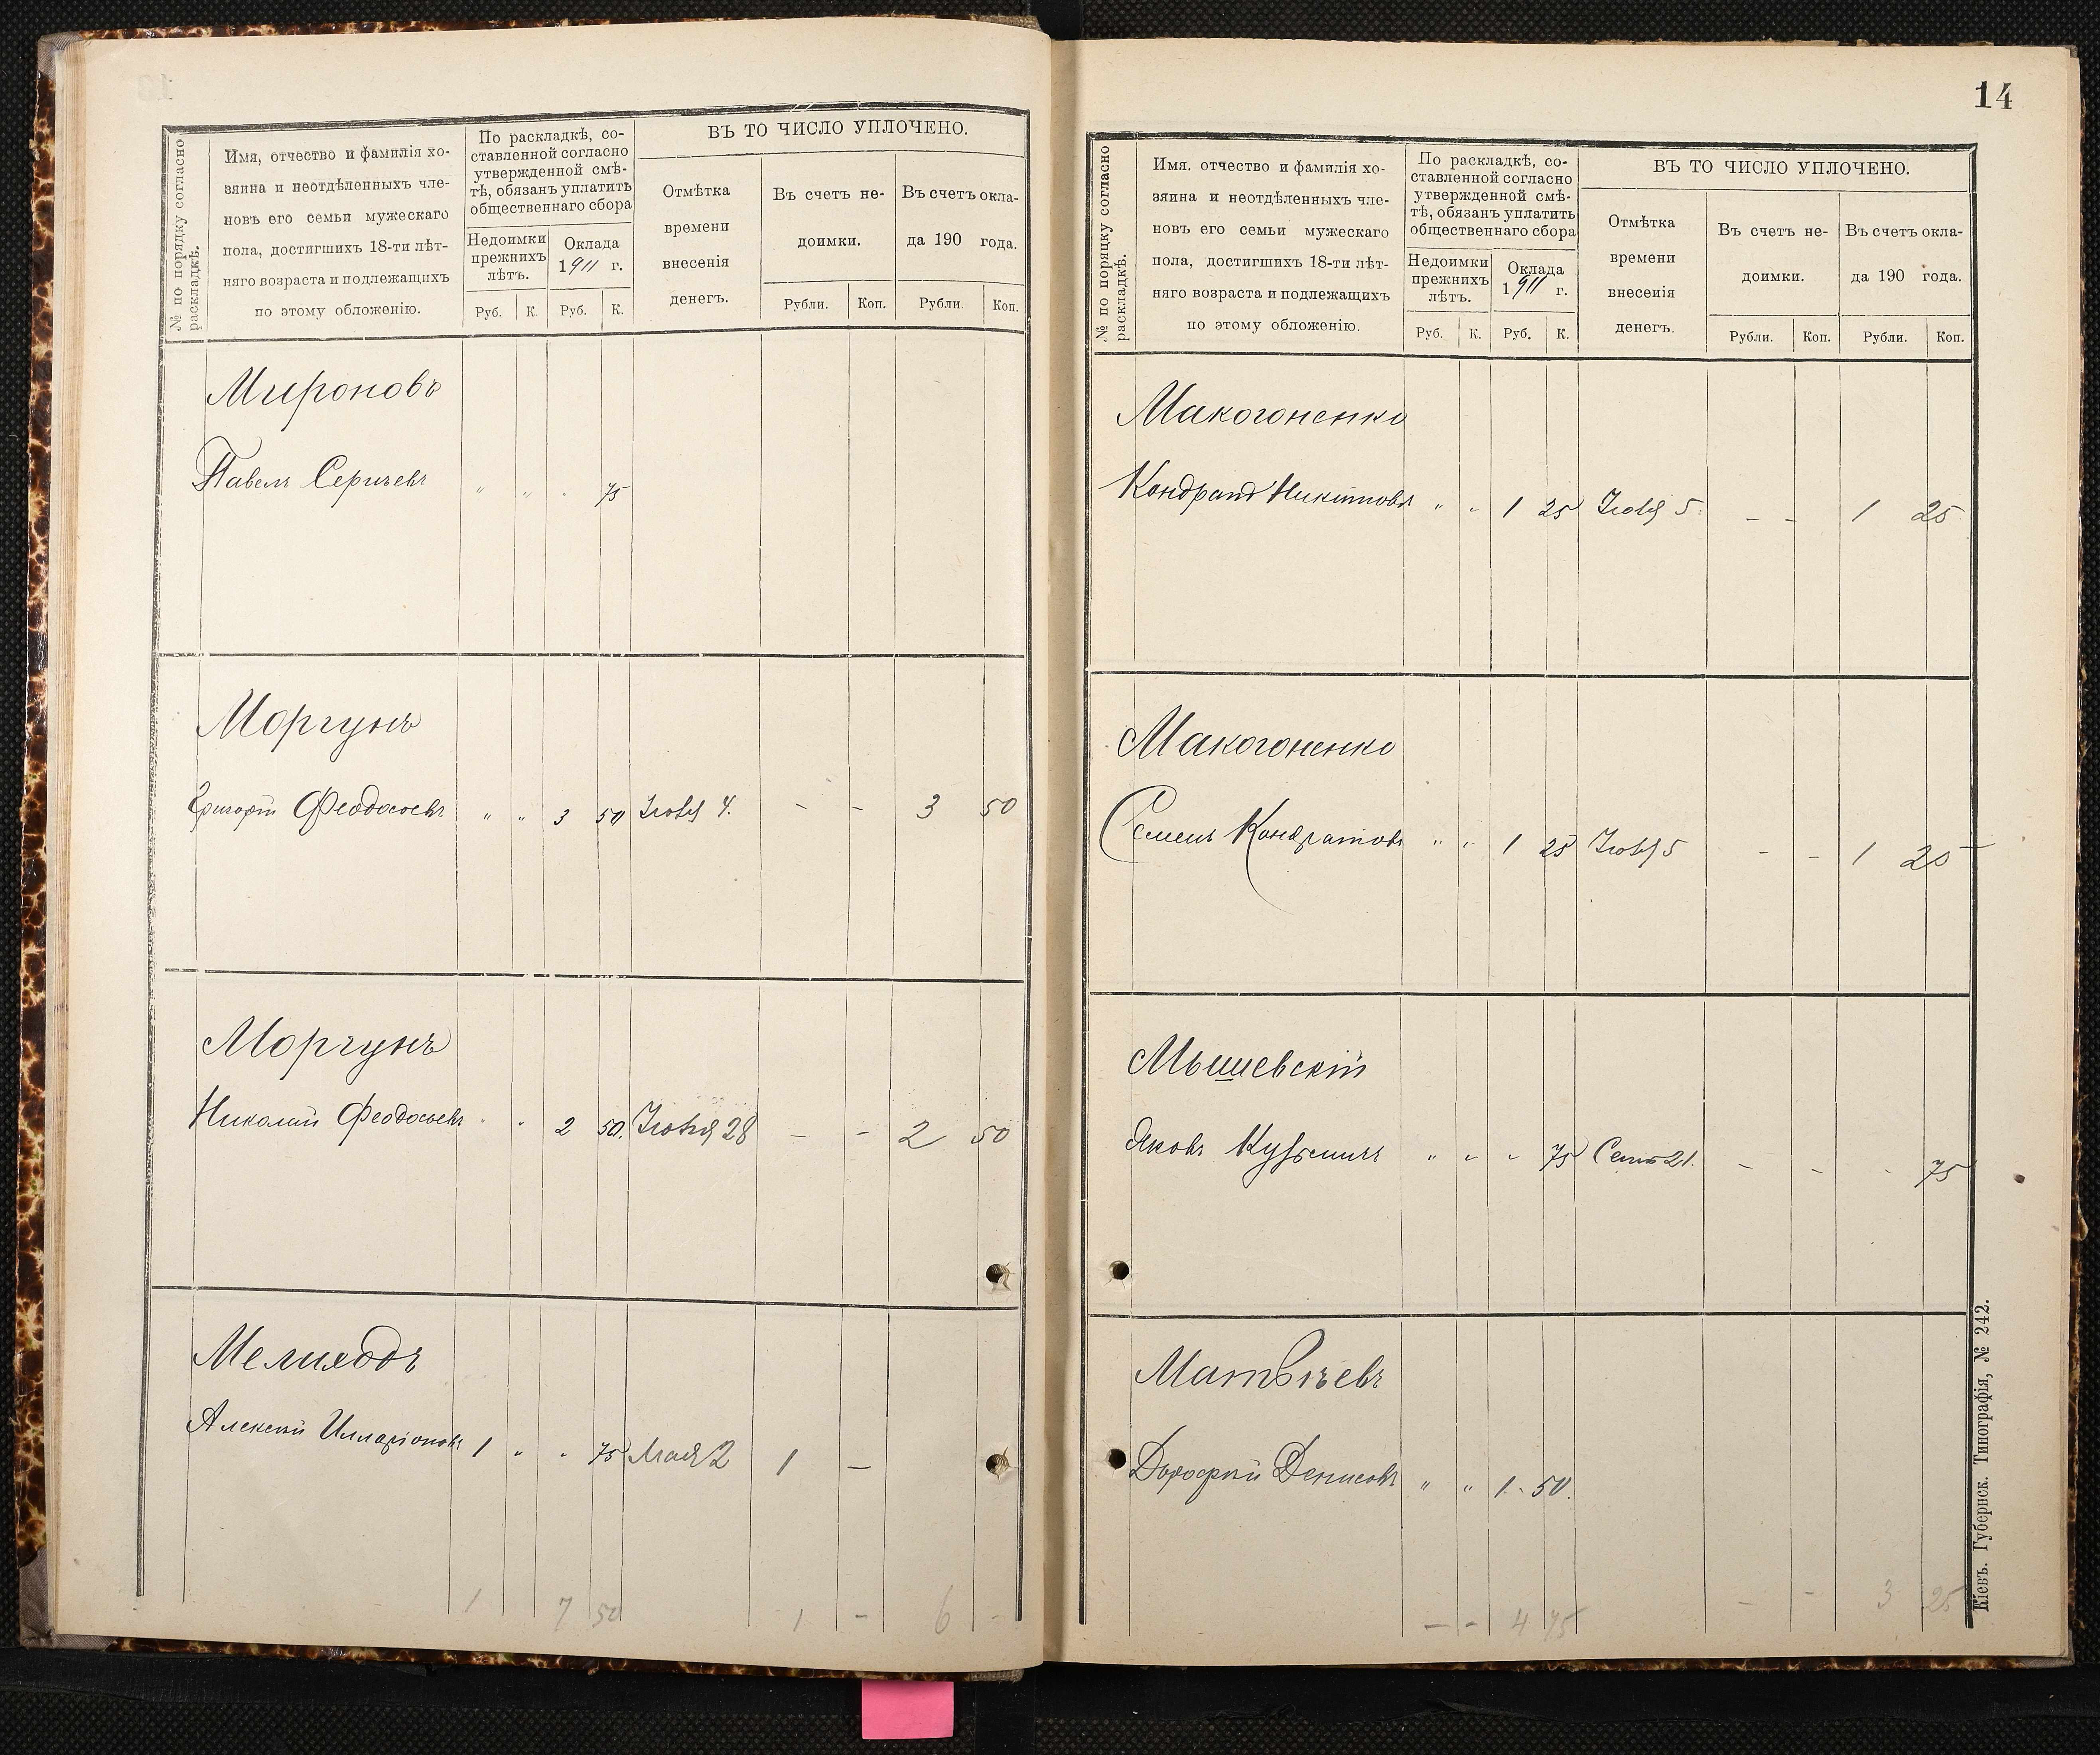 № по порядку согласно раскладкѣ.
Имя, отчество и фамилія хо-
зяина и неотдѣленныхъ чле-
новъ его семьи мужескаго
пола, достигшихъ 18-ти лѣт-
няго возраста и подлежащихъ
по этому обложенію.
По раскладкѣ, со-
ставленной согласно
утвержденной смѣ-
тѣ, обязанъ уплатить
общественнаго сбора
Недоимки
прежнихъ
лѣтъ.
Оклада
1911 г.
Руб. К. Руб. К.
ВЪ ТО ЧИСЛО УПЛОЧЕНО.
Отмѣтка
времени
внесенія
денегъ.
Въ счетъ не-
доимки.
Рубли. Коп.
Въ счетъ окла-
да 190 года.
Рубли. Коп.
Мироновъ
Павелъ Сергѣевъ " " " 75
Моргунъ
Григорій Феодосіевъ " " 3 50 Іюня 4. - - 3 50
Моргунъ
Николай Феодосіевъ " " 2 50. Іюня 28 - - 2 50
Мелиходъ
Алексѣй Илларіоновъ 1 " " 75 Мая 2 1 —
1 7 50 1 - 6 -
14
№ по порядку согласно раскладкѣ.
Имя, отчество и фамилія хо-
зяина и неотдѣленныхъ чле-
новъ его семьи мужескаго
пола, достигшихъ 18-ти лѣт-
няго возраста и подлежащихъ
по этому обложенію.
По раскладкѣ, со-
ставленной согласно
утвержденной смѣ-
тѣ, обязанъ уплатить
общественнаго сбора
Недоимки
прежнихъ
лѣтъ.
Оклада
1911 г.
Руб. К. Руб. К.
ВЪ ТО ЧИСЛО УПЛОЧЕНО.
Отмѣтка
времени
внесенія
денегъ.
Въ счетъ не-
доимки.
Рубли. Коп.
Въ счетъ окла-
да 190 года.
Рубли. Коп.
Макогоненко
Кондратъ Никитовъ " " 1 25 Іюня 5. - - 1 25
Макогоненко
Семенъ Кондратовъ " " 1 25 Іюня 5 - - 1 25
Мышевскій
Яковъ Кузьмичъ " " " 75 Сент 21. - - - 75
Матвѣевъ
Дорофей Денисовъ " " 1 - 50.
- - 4 75 - - 3 25
Кіевъ. Губернск. Типографія, № 242.